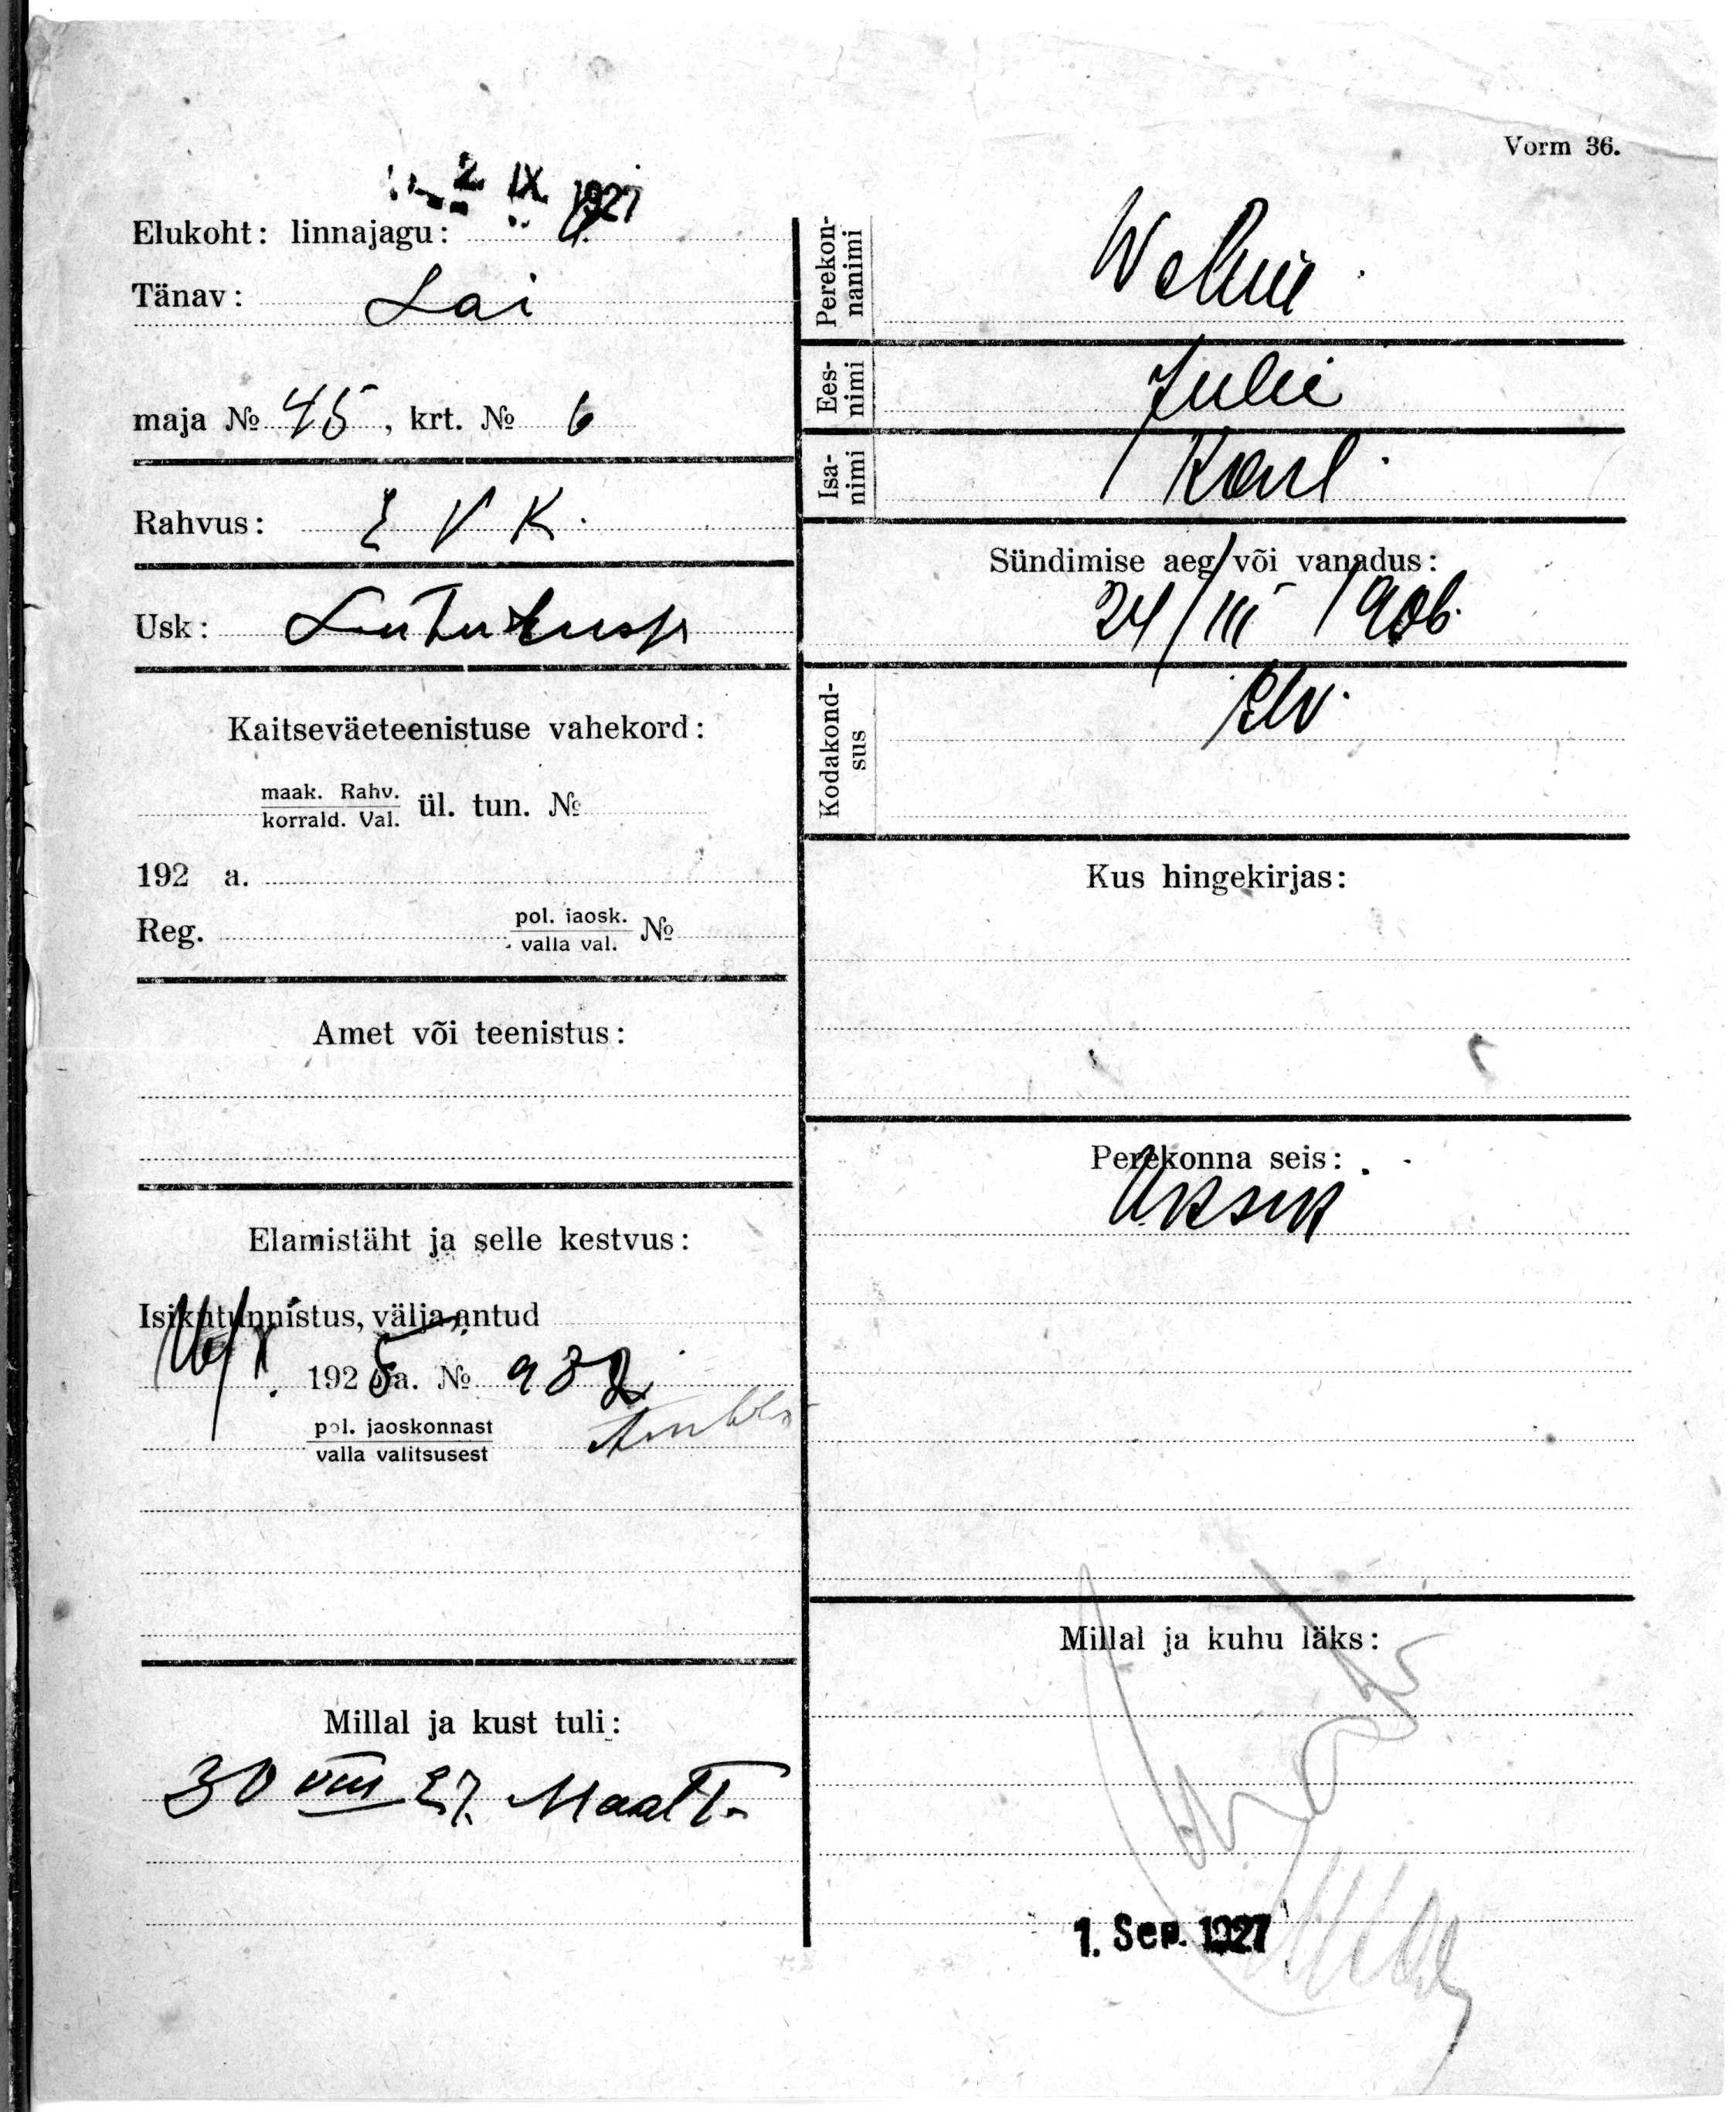 Vorm 36.
2. IX 1927
Elukoht: linnajagu:
Tänav: Lai
maja № 45, krt. № 6
Rahvus: E V K.
Usk: Luteruse
Kaitseväeteenistuse vahekord:
maak. Rahv.
korrald. Val. ül. tun. №
192 a.
Reg. pol. jaosk.
valla val. №
Amet või teenistus:
Elamistäht ja selle kestvus:
Isikutunnistus, välja antud
192 5 a. № 932
pol. jaoskonnast
valla valitsusest
Millal ja kust tuli:
30 VIII 27. Maalt
Perekon-
nanimi
Ees-
nimi Julie
Isa-
nimi Karl
Sündimise aeg või vanadus:
24/III 1906.
Kodakond-
sus
Kus hingekirjas:
Perekonna seis:
Üksik
Millal ja kuhu läks:
1. Sep. 1927